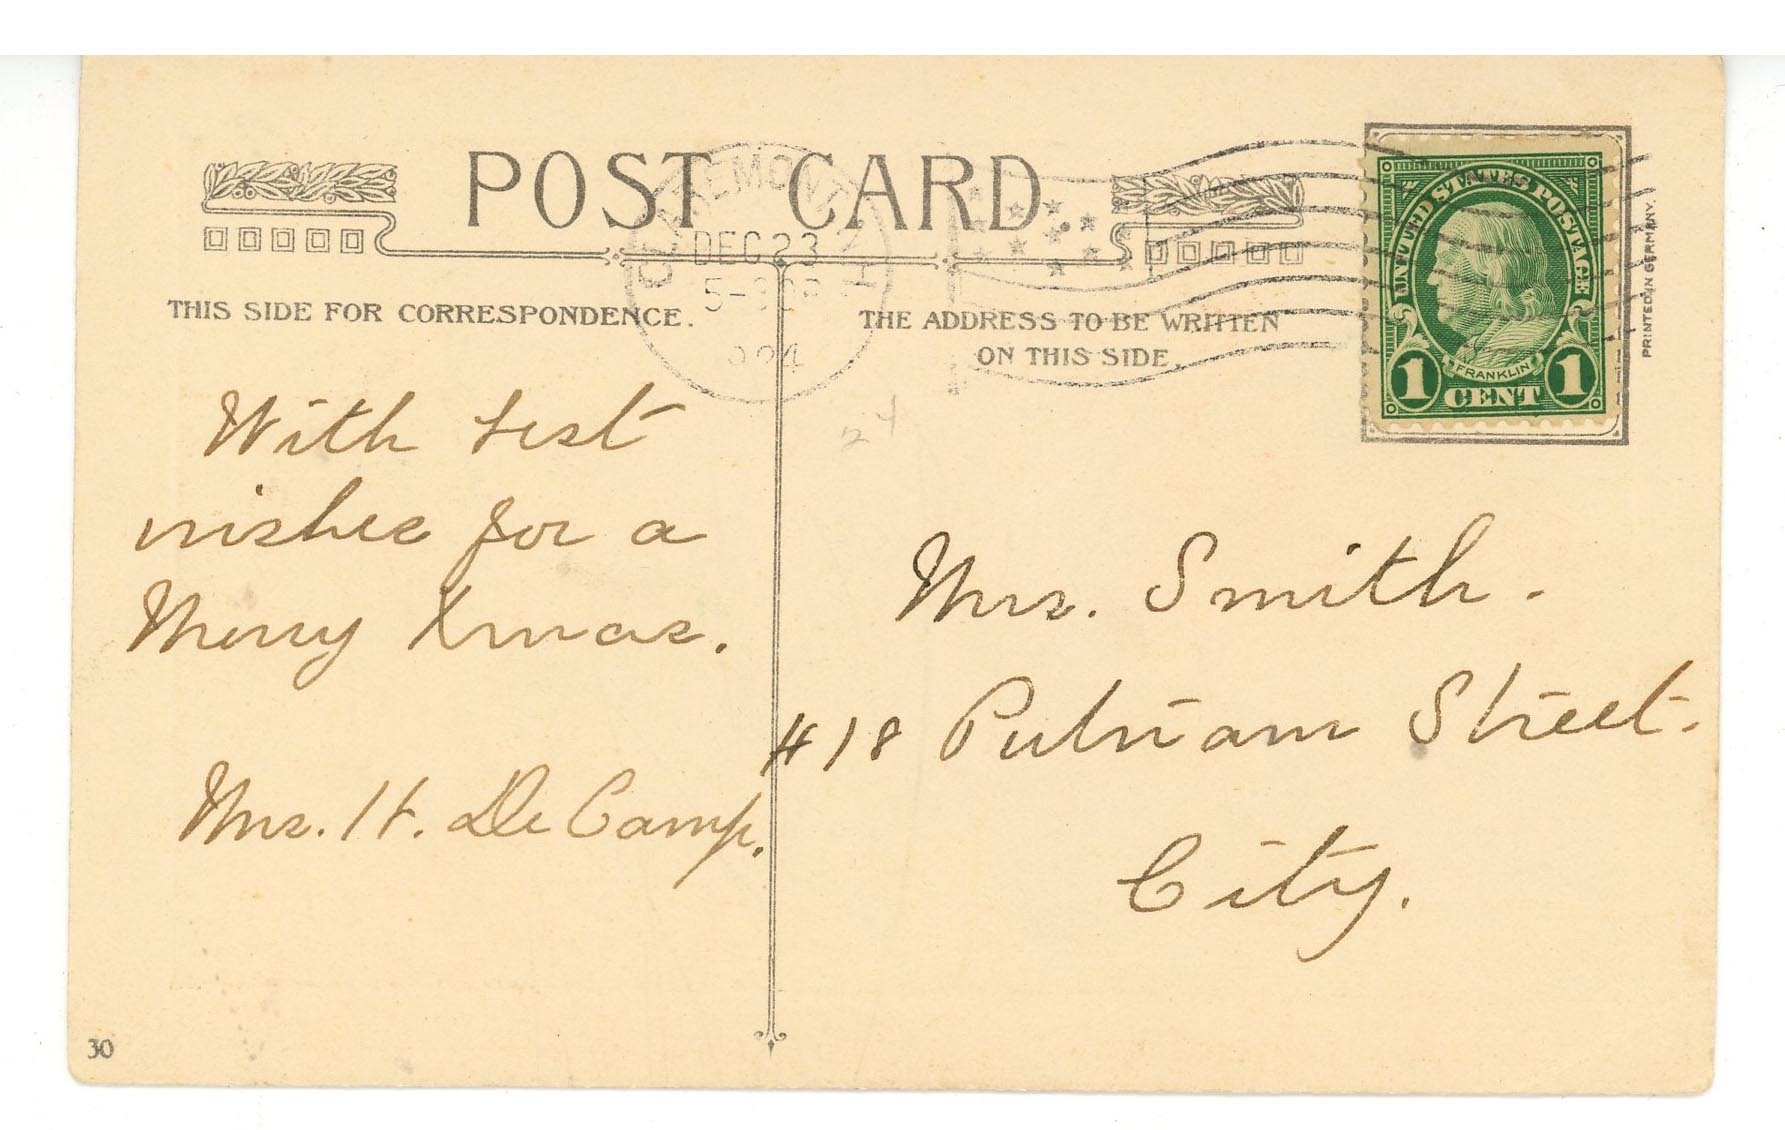 POST CARD
CLAREMONT
DEC 23
THIS SIDE FOR CORRESPONDENCE.
THE ADDRESS TO BE WRITTEN
ON THIS SIDE.
UNITED STATES POSTAGE
FRANKLIN
1 CENT 1
PRINTED IN GERMANY.
24
With best
wishes for a
Merry Xmas.
Mrs. H. De Camp.
Mrs. Smith.
#18 Putnam Street.
City.
30